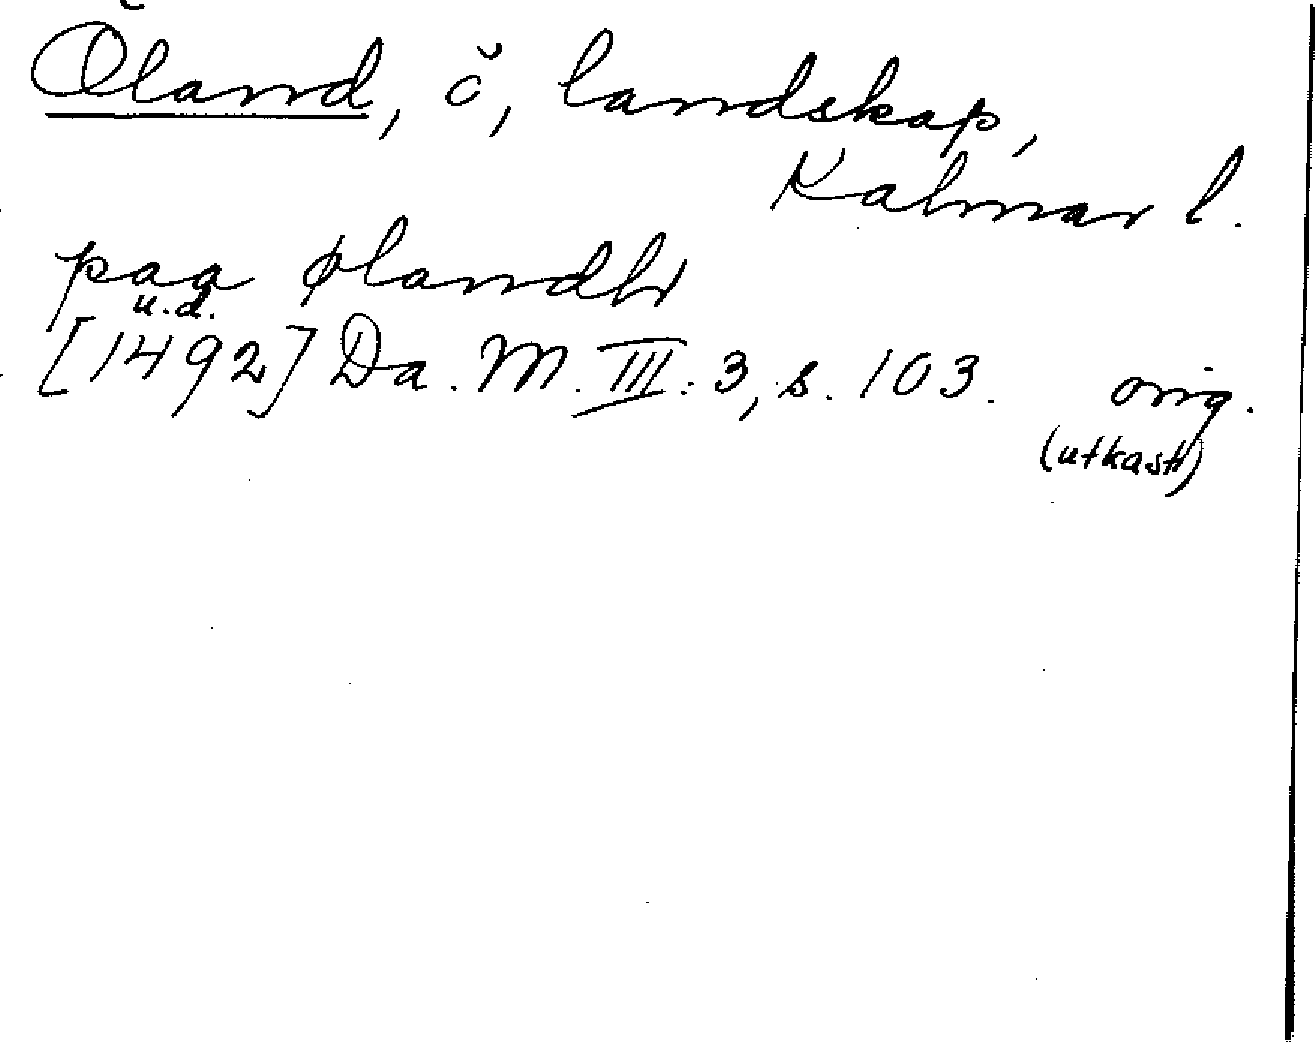 Öland, ö, landskap,
Kalmar l.
paa Ølandh
u.d.
[1492] Da. M. III: 3, s. 103. orig.
(utkast)